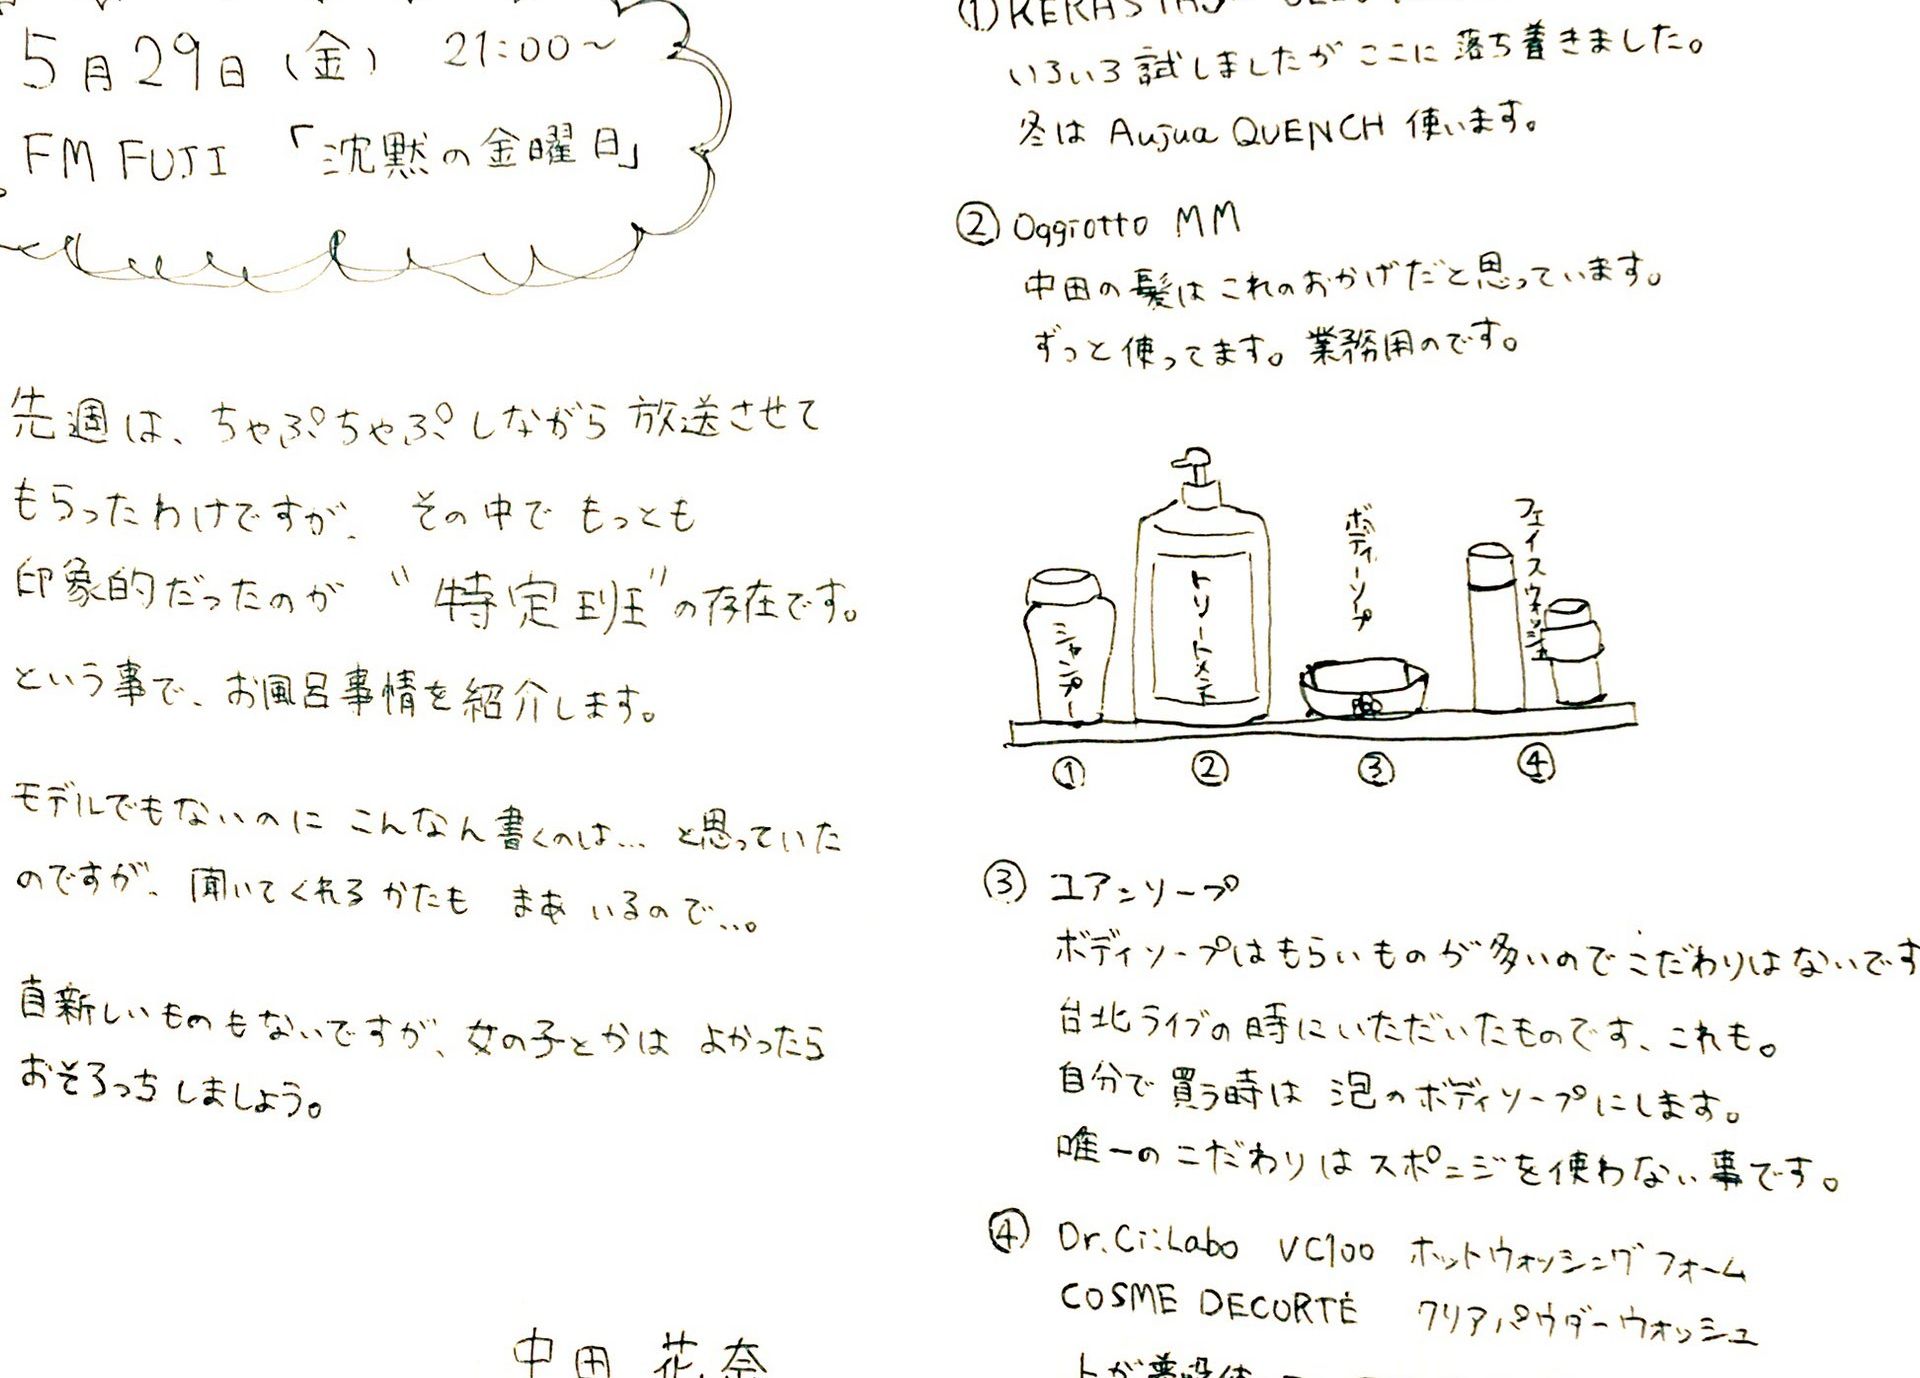 5月29日(金) 21:00~
FM FUJI 「沈黙の金曜日」
先週は、ちゃぷちゃぷしながら放送させて
もらったわけですが、その中でもっとも
印象的だったのが “特定班”の存在です。
という事で、お風呂事情を紹介します。
モデルでもないのに こんなん書くのは… と思っていた
のですが、聞いてくれるかたも まあ いるので…。
目新しいものもないですが、女の子とかは よかったら
おそろっちしましょう。
中田 花奈
① KERASTASE
いろいろ試しましたが ここに落ち着きました。
冬は Aujua QUENCH 使います。
② Oggiotto MM
中田の髪はこれのおかげだと思っています。
ずっと使ってます。業務用のです。
シャンプー
トリートメント
ボディーソープ
フェイスウォッシュ
① ② ③ ④
③ ユアンソープ
ボディソープはもらいものが多いのでこだわりはないです
台北ライブの時にいただいたものです、これも。
自分で買う時は 泡のボディソープにします。
唯一のこだわりはスポンジを使わない事です。
④ Dr.Ci:Labo VC100 ホットウォッシングフォーム
COSME DECORTÉ クリアパウダーウォッシュ